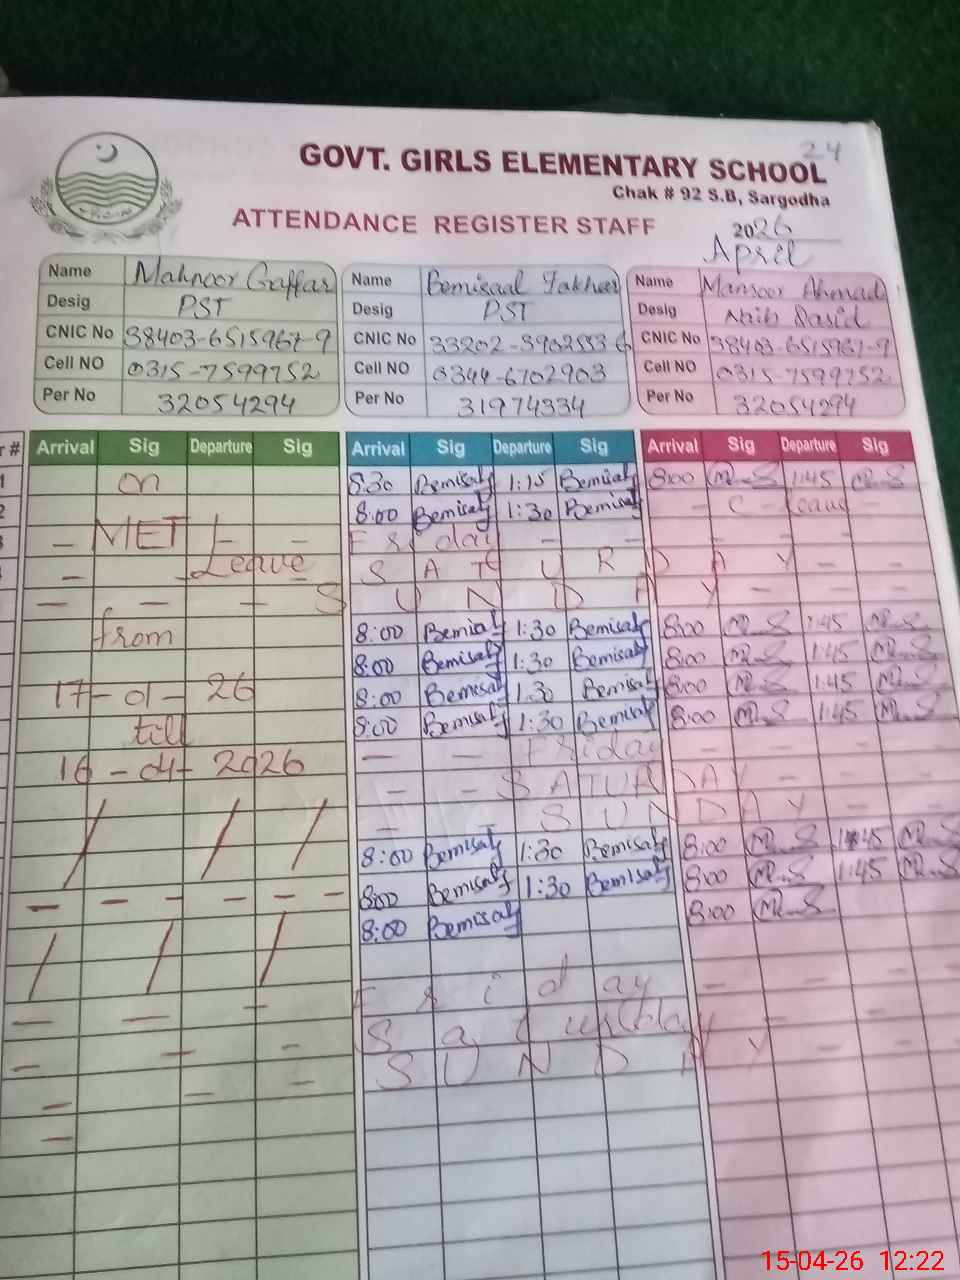 24
GOVT. GIRLS ELEMENTARY SCHOOL
Chak # 92 S.B, Sargodha
ATTENDANCE REGISTER STAFF
2026
April
Name Mahnoor Gaffar Name Bemisaal Fakhar Name Mansoor Ahmad
Desig PST Desig PST Desig Naib Qasid
CNIC No 38403-6515967-9 CNIC No 33202-3902553-6 CNIC No 38403-6515967-9
Cell NO 0315-7599752 Cell NO 0344-6702903 Cell NO 0315-7599752
Per No 32054294 Per No 31974334 Per No 32054294
r # Arrival Sig Departure Sig Arrival Sig Departure Sig Arrival Sig Departure Sig
1 on 8:30 Bemisaly 1:15 Bemisaly 8:00 M.S 1:45 M.S
2 8:00 Bemisaly 1:30 Bemisaly - C - leave -
- MET - - Friday - - - - - -
- Leave SATURDAY - -
- - - SUNDAY - - -
from 8:00 Bemisaly 1:30 Bemisaly 8:00 M.S 1:45 M.S
8:00 Bemisaly 1:30 Bemisaly 8:00 M.S 1:45 M.S
17-01-26 8:00 Bemisaly 1:30 Bemisaly 8:00 M.S 1:45 M.S
till 8:00 Bemisaly 1:30 Bemisaly 8:00 M.S 1:45 M.S
16-04-2026 - - Friday - - - -
- - SATURDAY - - -
- - SUNDAY - -
8:00 Bemisaly 1:30 Bemisaly 8:00 M.S 1:45 M.S
- - - - - 8:00 Bemisaly 1:30 Bemisaly 8:00 M.S 1:45 M.S
8:00 Bemisaly 8:00 M.S
Friday - - - -
- - - Saturday - - -
- - - SUNDAY - - -
15-04-26 12:22